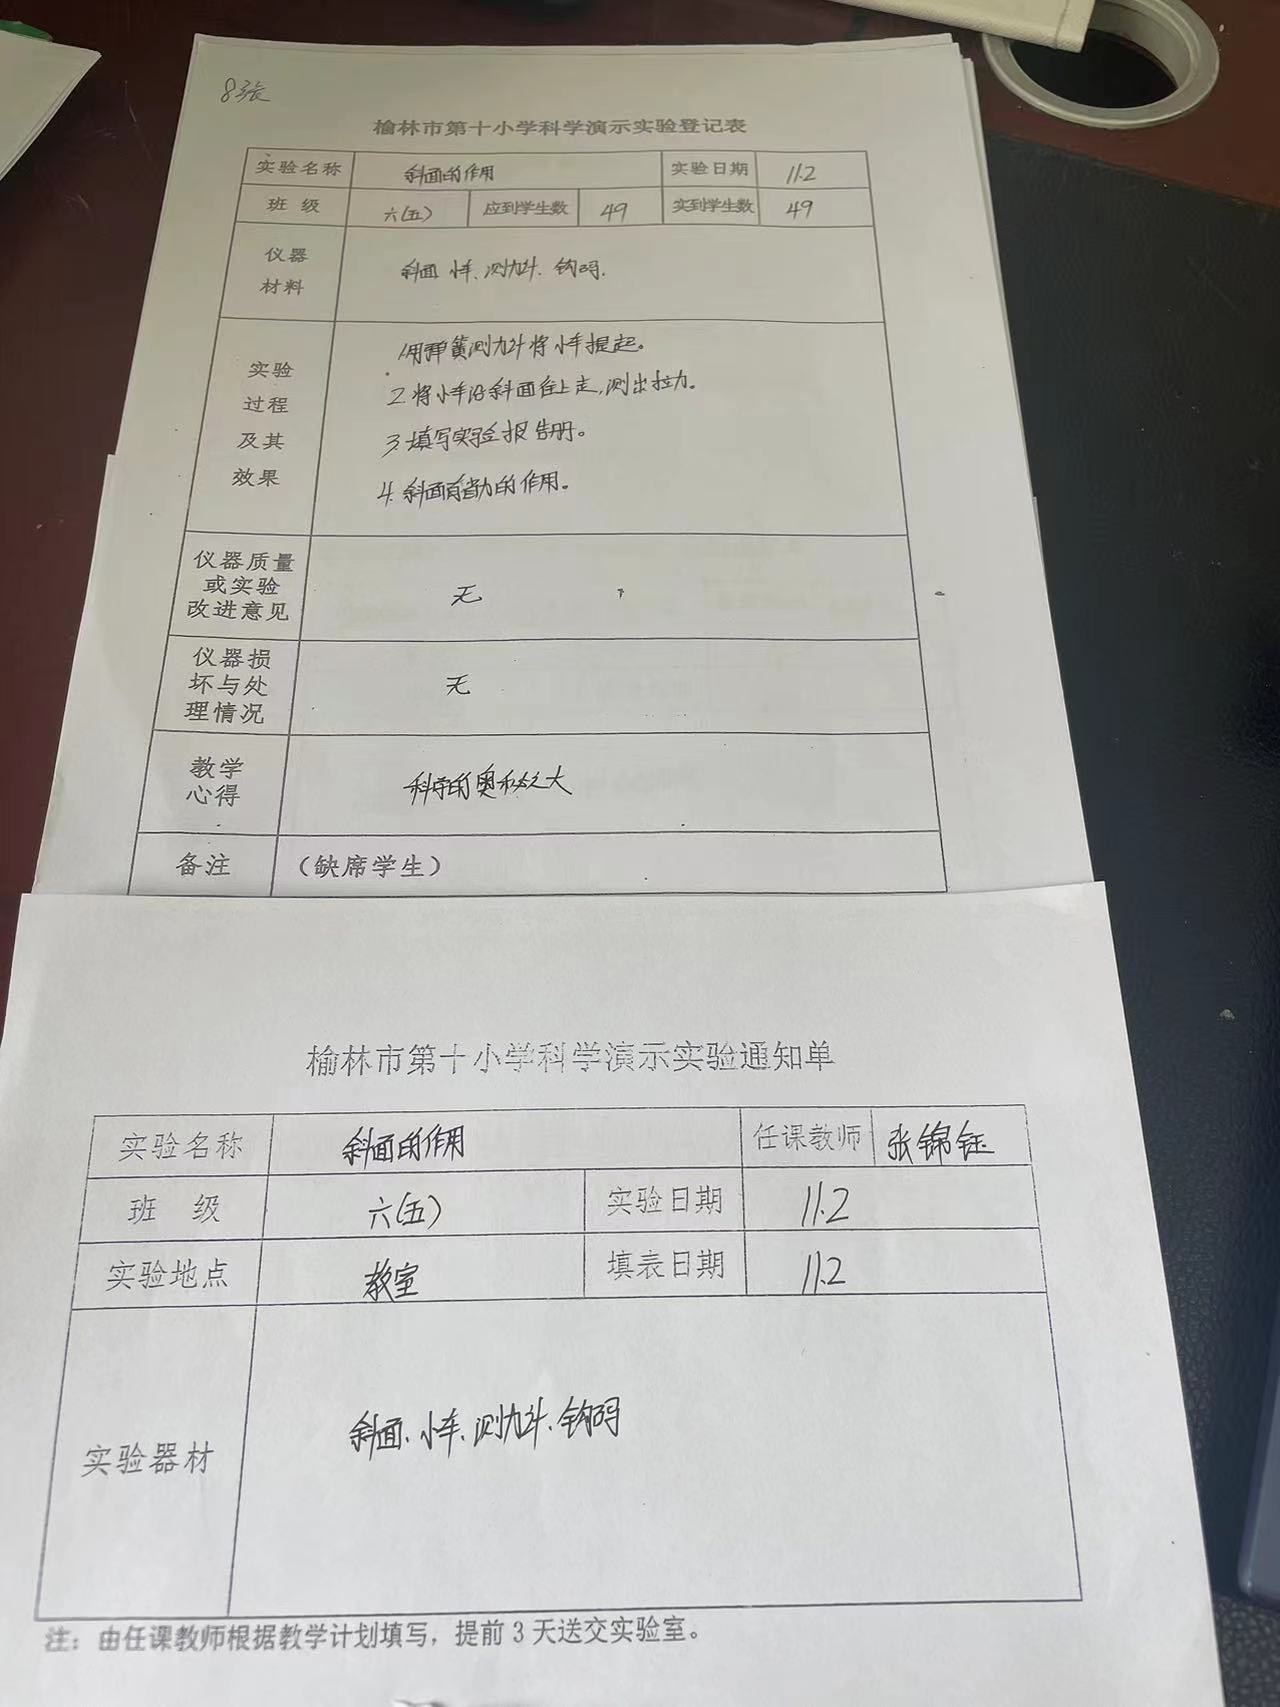 8张
榆林市第十小学科学演示实验登记表
实验名称 斜面的作用 实验日期 11.2
班 级 六(五) 应到学生数 49 实到学生数 49
仪器
材料
斜面 小车、测力计、钩码.
实验
过程
及其
效果
1.用弹簧测力计将小车提起。
2.将小车沿斜面往上走,测出拉力。
3.填写实验报告册。
4.斜面有省力的作用。
仪器质量
或实验
改进意见
无
仪器损
坏与处
理情况
无
教学
心得
科学的奥秘之大
备注 (缺席学生)
榆林市第十小学科学演示实验通知单
实验名称 斜面的作用 任课教师 张锦钰
班 级 六(五) 实验日期 11.2
实验地点 教室 填表日期 11.2
实验器材 斜面、小车、测力计、钩码
注：由任课教师根据教学计划填写，提前3天送交实验室。